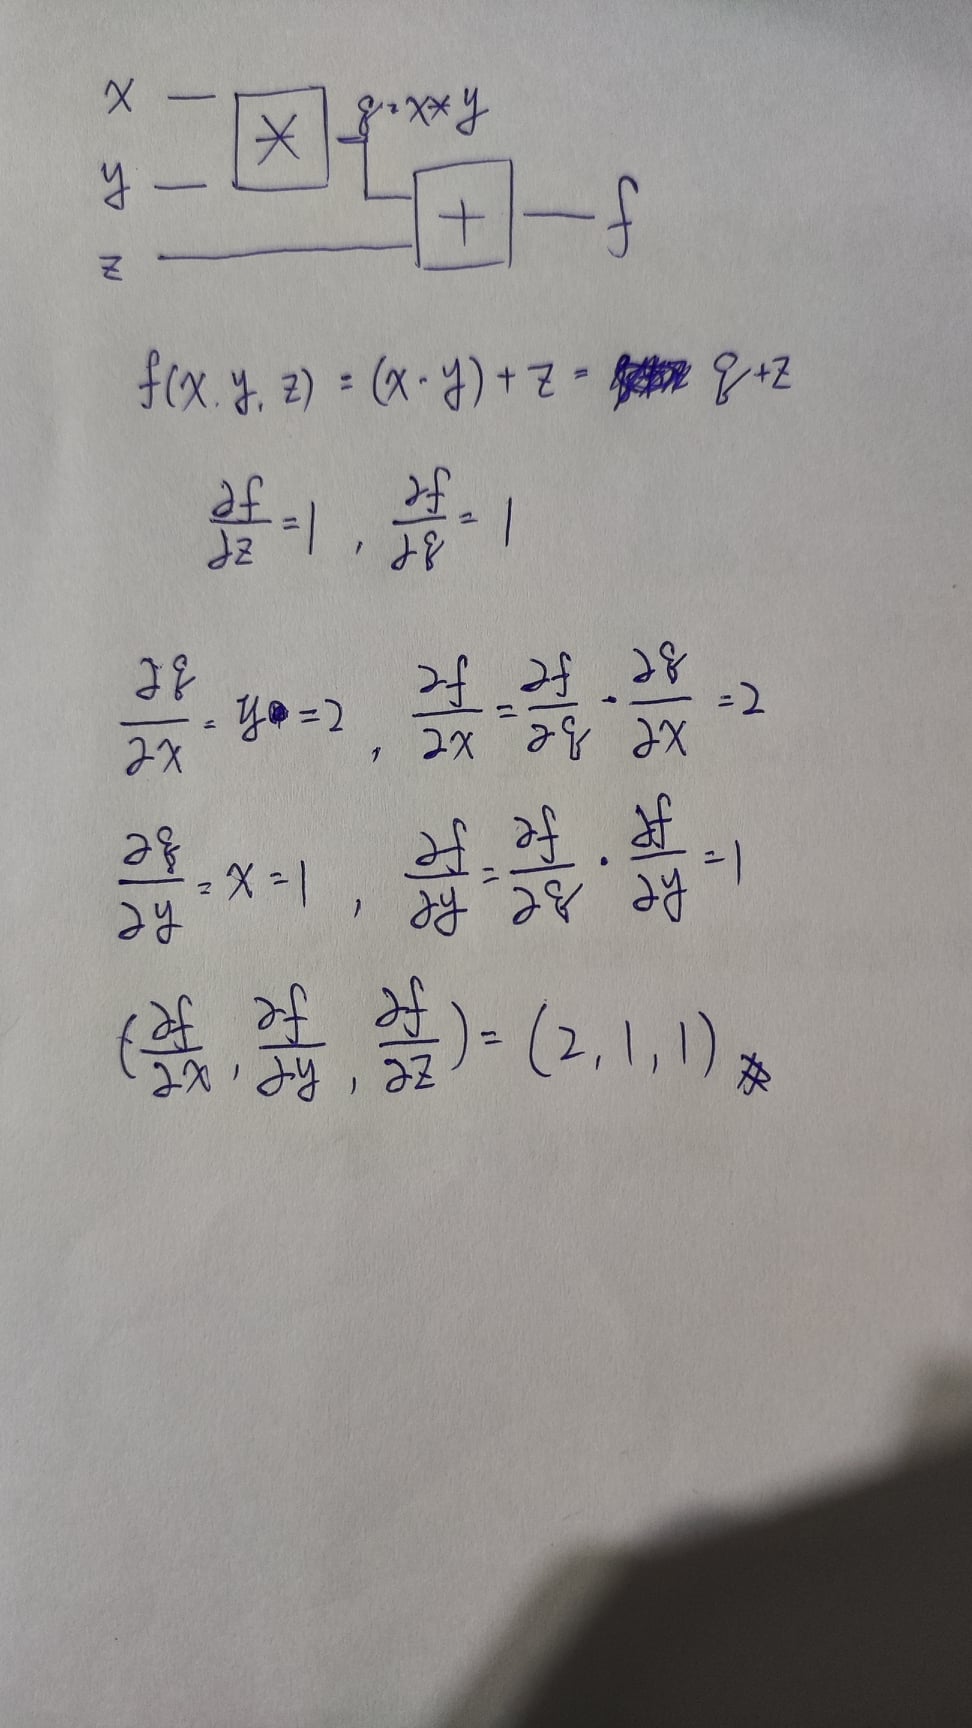 x
q = x * y
*
y
+
f
z
f(x, y, z) = (x · y) + z = q + z
∂f/∂z = 1 , ∂f/∂q = 1
∂q/∂x = y = 2 , ∂f/∂x = ∂f/∂q · ∂q/∂x = 2
∂q/∂y = x = 1 , ∂f/∂y = ∂f/∂q · ∂f/∂y = 1
(∂f/∂x , ∂f/∂y , ∂f/∂z) = (2, 1, 1)